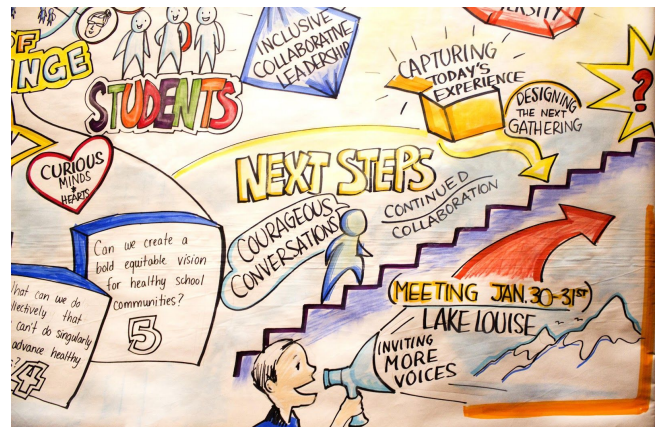 OF
NGE
STUDENTS
INCLUSIVE
COLLABORATIVE
LEADERSHIP
ERSITY
CAPTURING
TODAY'S
EXPERIENCE
DESIGNING
THE NEXT
GATHERING
?
CURIOUS
MINDS
+
HEARTS
NEXT STEPS
CONTINUED
COLLABORATION
COURAGEOUS
CONVERSATIONS
Can we create a
bold equitable vision
for healthy school
communities?
5
hat can we do
llectively that
can't do singularly
advance healthy
?
4
(MEETING JAN. 30-31ST)
LAKE LOUISE
INVITING
MORE
VOICES